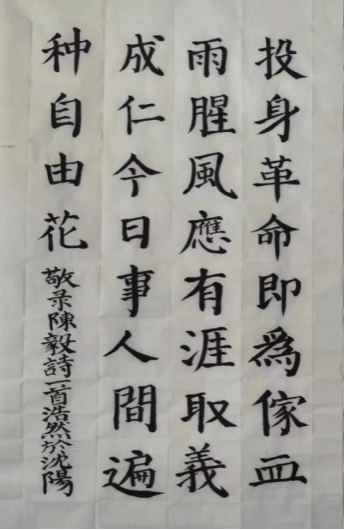 投身革命即為傢血
雨腥風應有涯取義
成仁今日事人間遍
种自由花
敬录陳毅詩一首浩然於沈陽